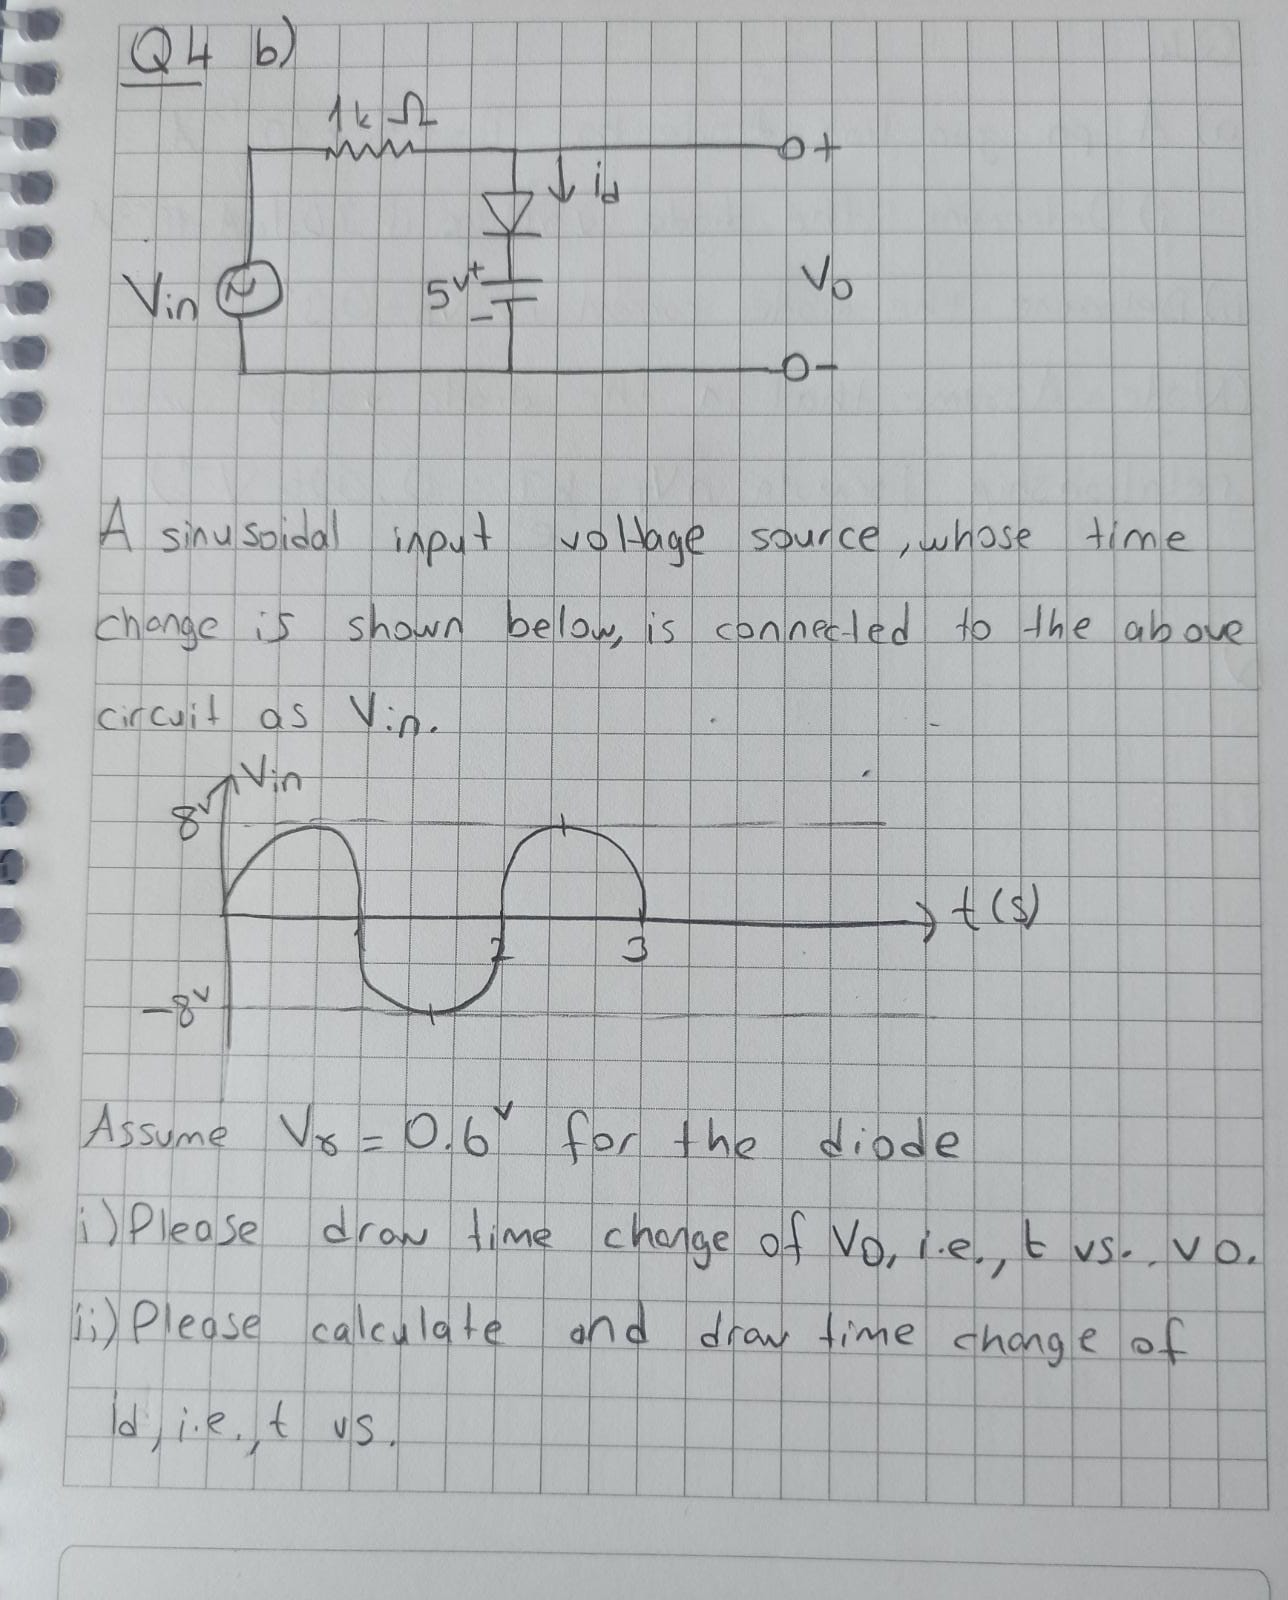 Q4 b)
1k Ω
+
id
Vin
5v+
-
Vo
-
A sinusoidal input voltage source, whose time
change is shown below, is connected to the above
circuit as Vin.
Vin
8v
t(s)
2
3
-8v
Assume Vγ = 0.6v for the diode
i) Please draw time change of Vo, i.e., t vs. vo.
ii) Please calculate and draw time change of
id, i.e., t vs.